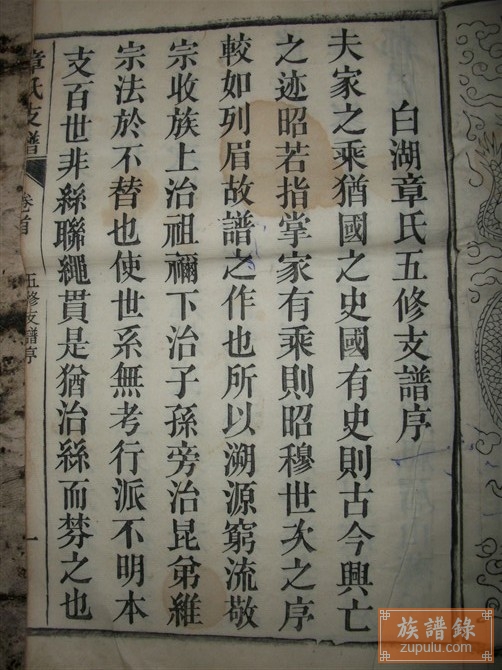 白湖章氏五修支譜序
夫家之乘猶國之史國有史則古今興亡
之迹昭若指掌家有乘則昭穆世次之序
較如列眉故譜之作也所以溯源窮流敬
宗收族上治祖禰下治子孫旁治昆弟維
宗法於不替也使世系無考行派不明本
支百世非絲聯繩貫是猶治絲而棼之也
章氏支譜 卷首 五修支譜序 一
族譜錄
zupulu.com